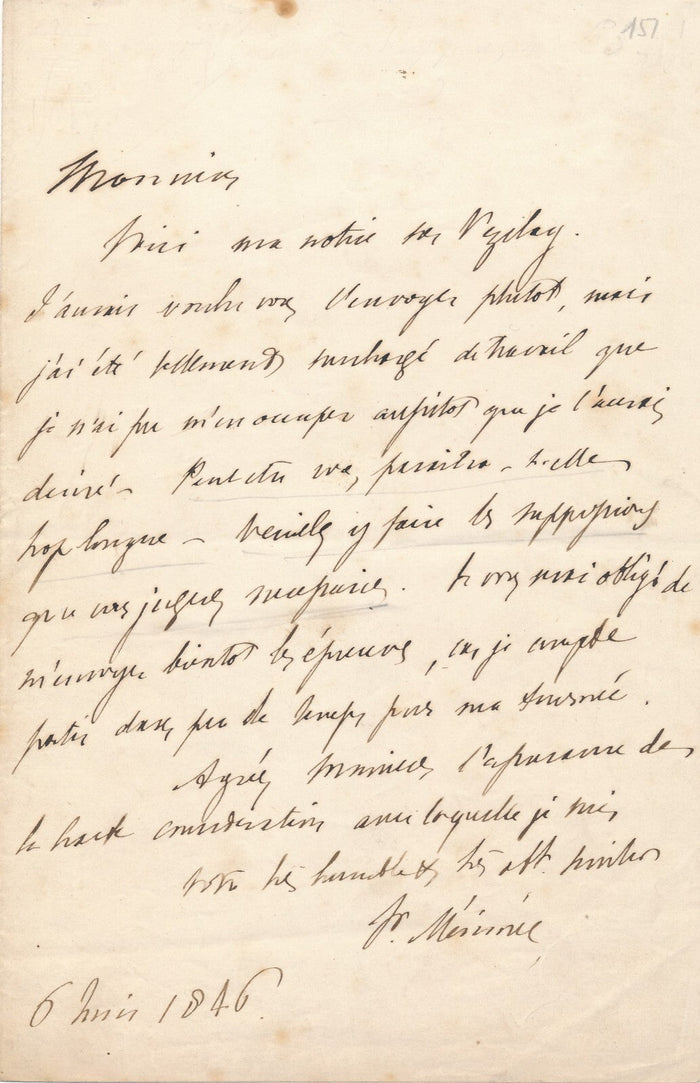 151
Monsieur
Voici ma notice sur Vezelay.
J'aurais voulu vous l'envoyer plutot, mais
j'ai été tellement surchargé de travail que
je n'ai pu m'en occuper aussitot que je l'aurais
désiré – Peut etre vous paraitra-t-elle
trop longue – Veuillez y faire les suppressions
que vous jugerez necessaires. Je vous serai obligé de
m'envoyer bientot les épreuves, car je compte
partir dans peu de temps pour ma tournée.
Agréez Monsieur l'assurance de
la haute consideration avec laquelle je suis
votre très humble & très obt. serviteur
Pr. Mérimée
6 1846.